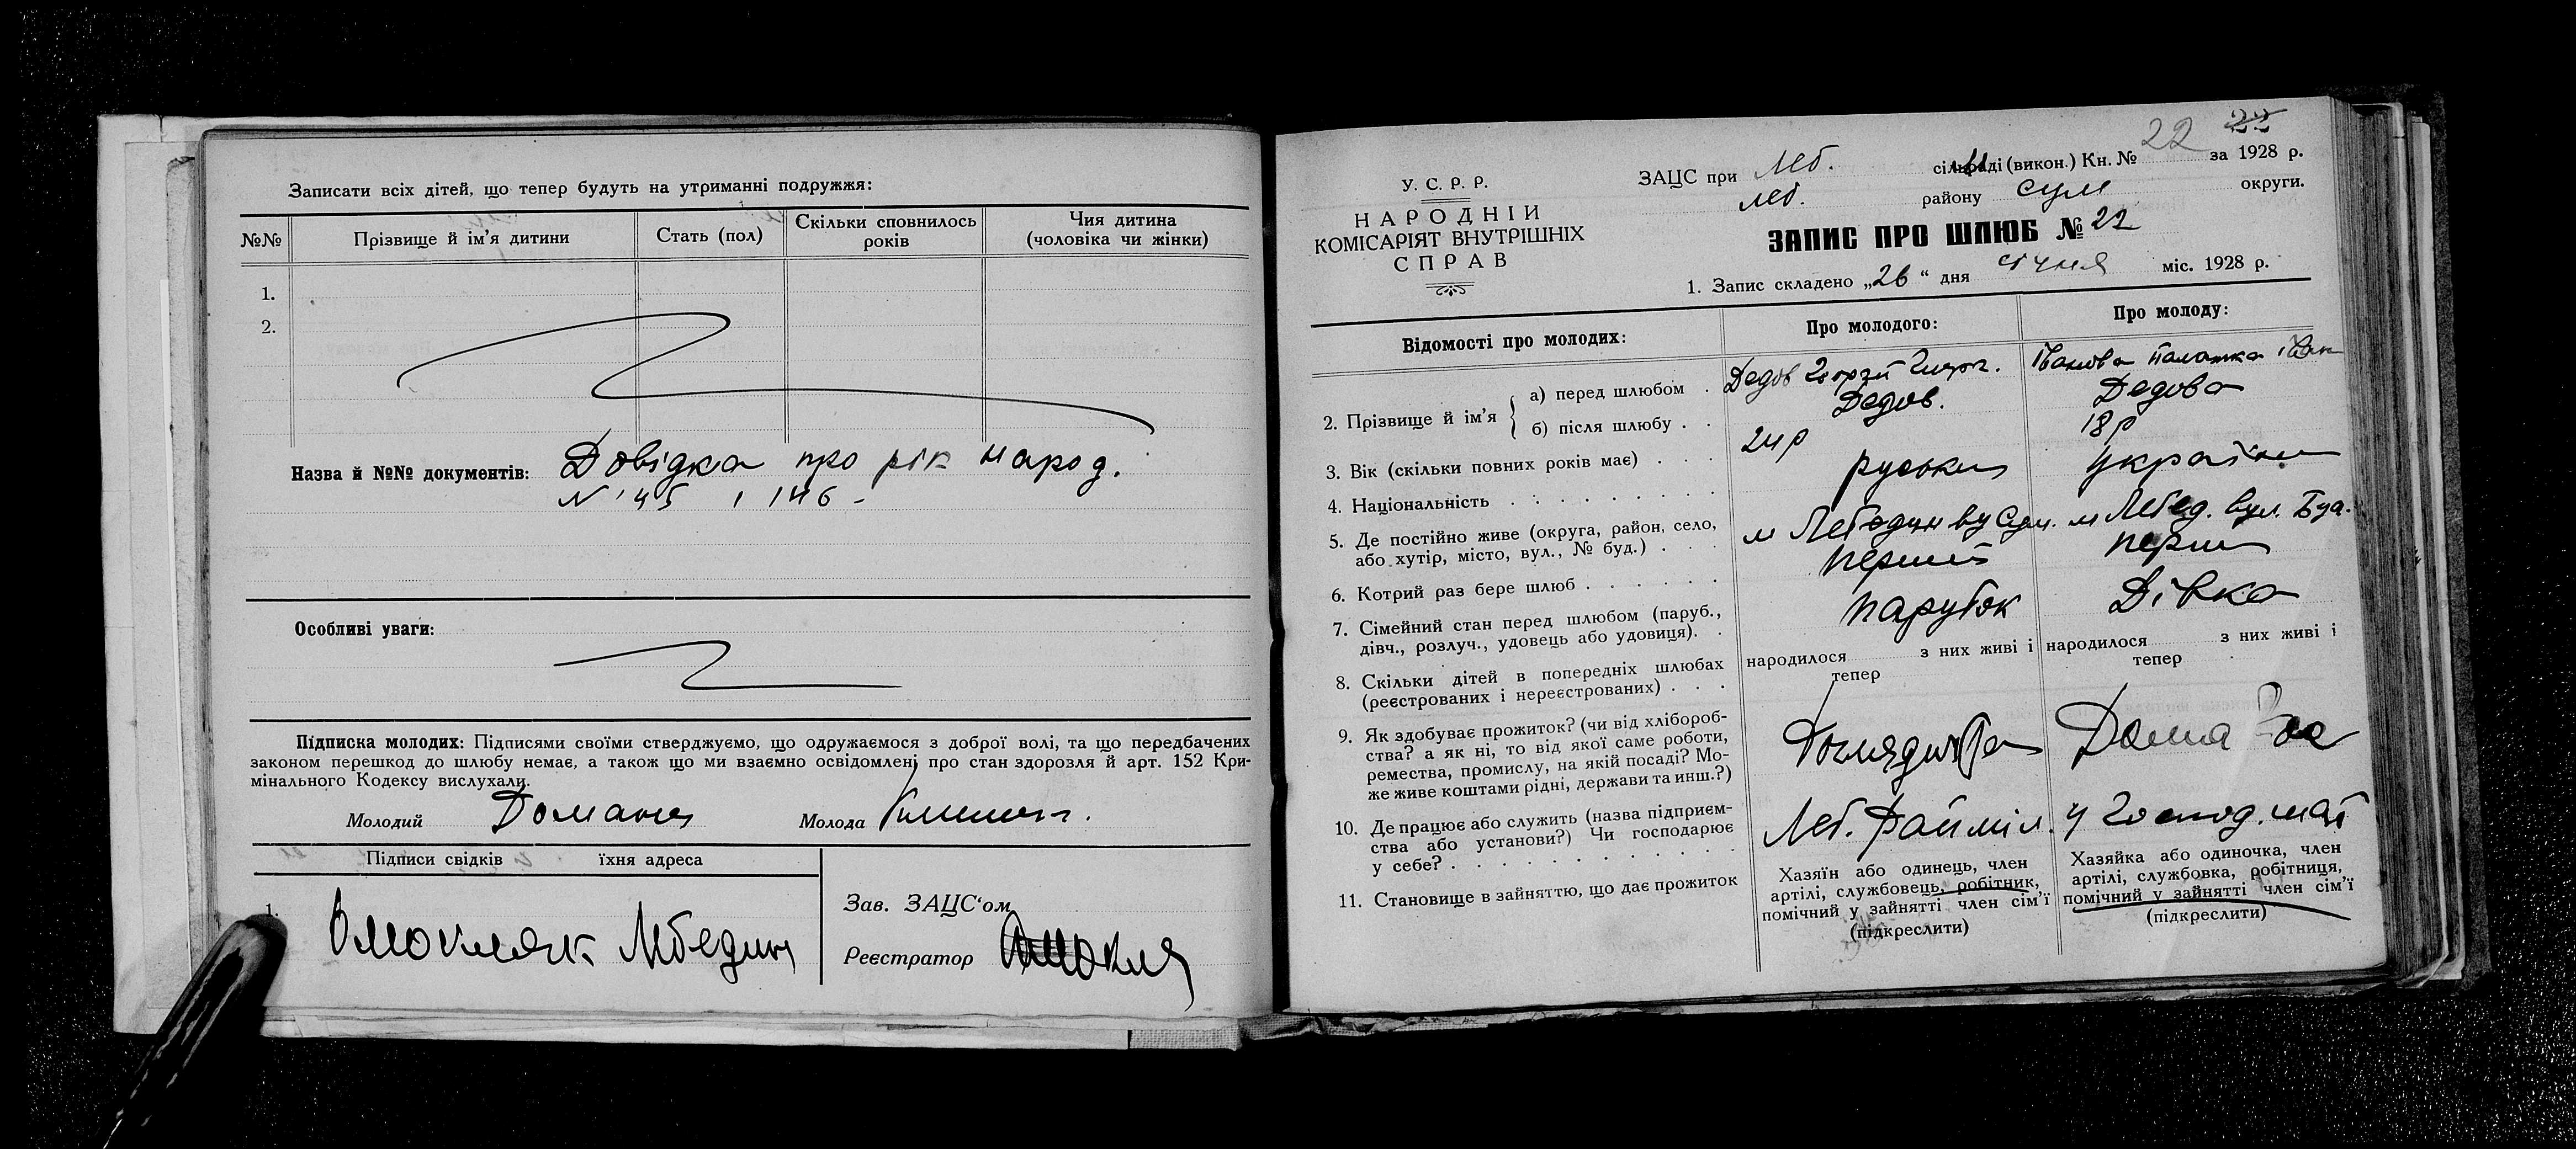 Записати всіх дітей, що тепер будуть на утриманні подружжя:
№№ Прізвище й ім'я дитини Стать (пол) Скільки сповнилось років Чия дитина (чоловіка чи жінки)
1.
2.
Назва й №№ документів: Довідка про рік народ.
N 145 і 146 -
Особливі уваги:
Підписка молодих: Підписями своїми стверджуємо, що одружаємося з доброї волі, та що передбачених
законом перешкод до шлюбу немає, а також що ми взаємно освідомлені про стан здоровля й арт. 152 Кри-
мінального Кодексу вислухали.
Молодий Молода
Підписи свідків їхня адреса
1. Лебедин
Зав. ЗАЦС'ом
Реєстратор
22 22
У. С. Р. Р.
НАРОДНІЙ
КОМІСАРІЯТ ВНУТРІШНІХ
СПРАВ
ЗАЦС при Леб. сільраді (викон.) Кн. № за 1928 р.
Леб. району Сум округи.
ЗАПИС ПРО ШЛЮБ № 22
1. Запис складено „26“ дня січня міс. 1928 р.
Відомості про молодих: Про молодого: Про молоду:
2. Прізвище й ім'я { а) перед шлюбом . Дедов
б) після шлюбу . . Дедов. Дедова
3. Вік (скільки повних років має) . . . 24 р 18 р
4. Національність . . . . . . . . . руський україн
5. Де постійно живе (округа, район, село,
або хутір, місто, вул., № буд.) . . . м Лебедин ву Сум. м Лебед. вул. Буд.
6. Котрий раз бере шлюб . . . . . . перший перш
7. Сімейний стан перед шлюбом (паруб.,
дівч., розлуч., удовець або удовиця). . парубок Дівка
8. Скільки дітей в попередніх шлюбах
(реєстрованих і нереєстрованих) . . .
народилося з них живі і тепер
народилося з них живі і тепер
9. Як здобуває прожиток? (чи від хлібороб-
ства? а як ні, то від якої саме роботи,
ремества, промислу, на якій посаді? Мо-
же живе коштами рідні, держави та инш.?)
10. Де працює або служить (назва підприєм-
ства або установи?) Чи господарює
у себе? . . . . . . . . . . . . Леб. Райміл. у господ. маті
11. Становище в зайняттю, що дає прожиток
Хазяїн або одинець, член
артілі, службовець, робітник,
помічний у зайнятті член сім'ї
(підкреслити)
Хазяйка або одиночка, член
артілі, службовка, робітниця,
помічний у зайнятті член сім'ї
(підкреслити)